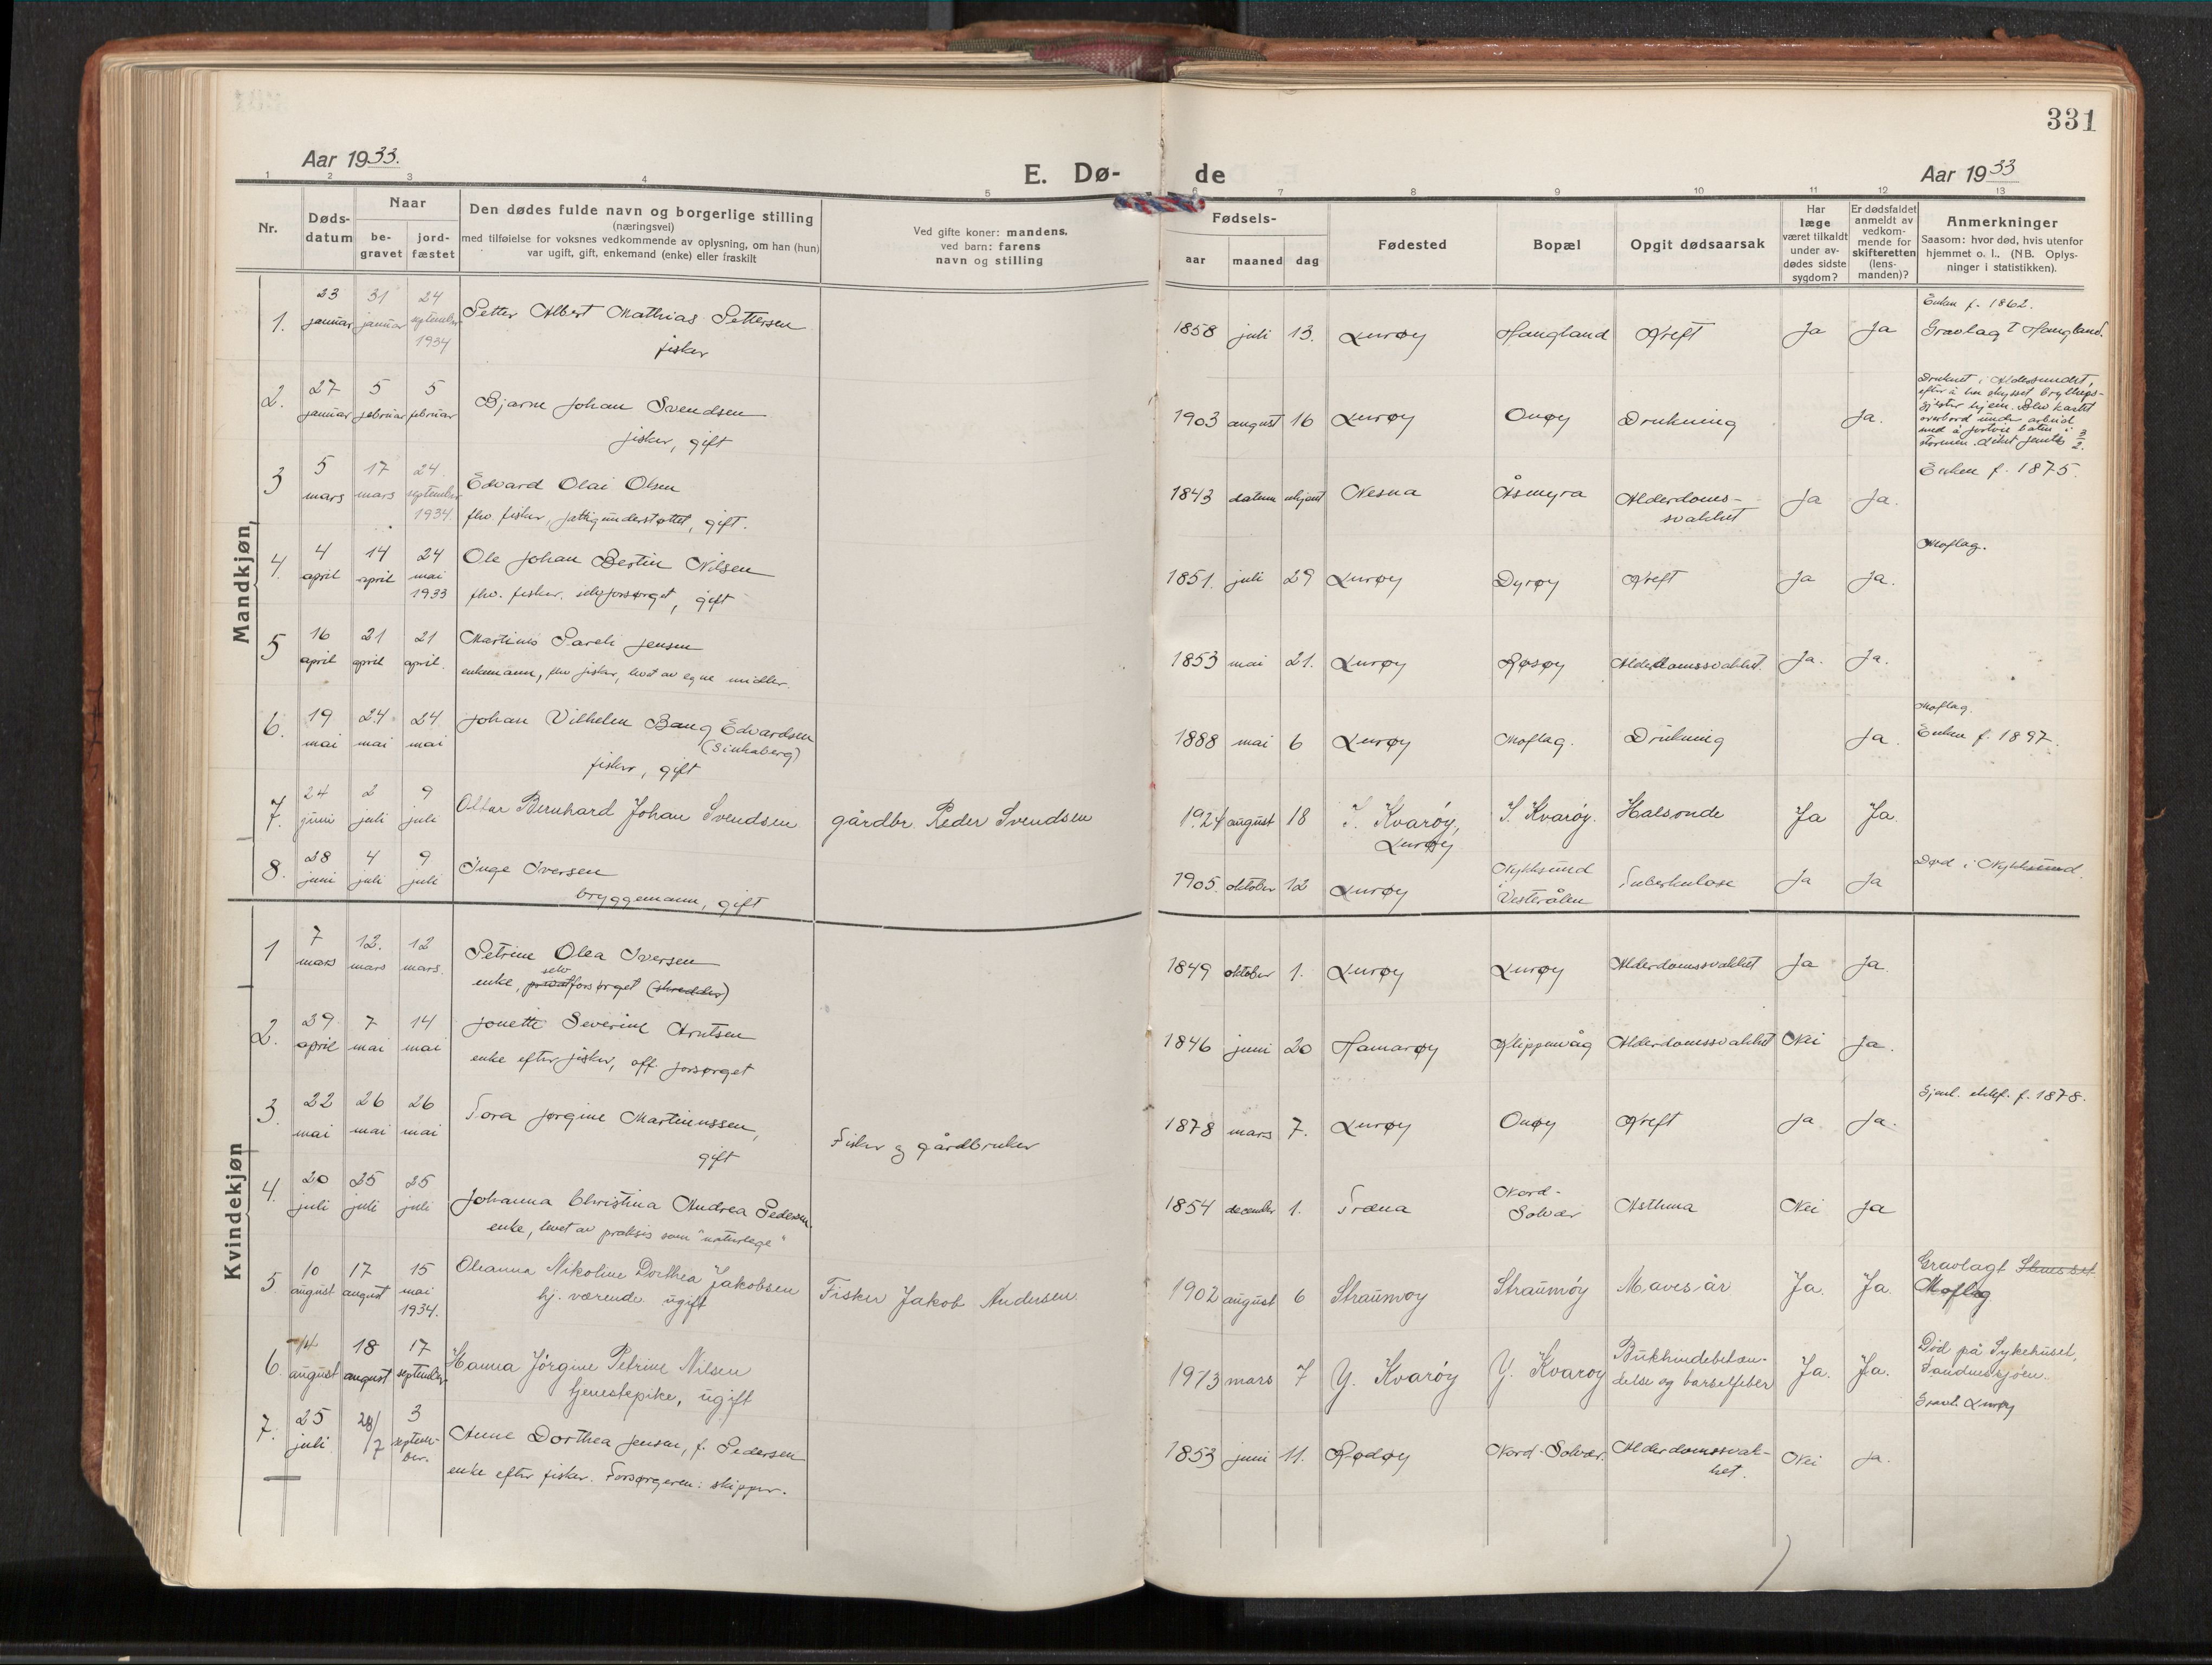 331
Aar 1933.
E. Dø-
de
Aar 1933
1 2 3 4 5 6 7 8 9 10 11 12 13
Nr.
Døds-
datum
Naar
be-
gravet
jord-
fæstet
Den dødes fulde navn og borgerlige stilling
(næringsvei)
med tilføielse for voksnes vedkommende av oplysning, om han (hun)
var ugift, gift, enkemand (enke) eller fraskilt
Ved gifte koner: mandens.
ved barn: farens
navn og stilling
Fødsels-
aar maaned dag
Fødested
Bopæl
Opgit dødsaarsak
Har
læge
været tilkaldt
under av-
dødes sidste
sygdom?
Er dødsfaldet
anmeldt av
vedkom-
mende for
skifteretten
(lens-
manden)?
Anmerkninger
Saasom: hvor død, hvis utenfor
hjemmet o. l.. (NB. Oplys-
ninger i statistikken).
Mandkjøn
1. 23 januar 31 januar 24 september 1934 Petter Albert Mathias Pettersen
fisker
1858 juli 13. Lurøy Haugland Kreft Ja Ja
Enken f. 1862.
Gravlagt Haugland.
2. 27 januar 5 februar 5 februar Bjarne Johan Svendsen
fisker, gift
1903 august 16 Lurøy Onøy Drukning Ja.
Druknet i Aldersundet,
efter å ha skysset bryllups-
gjester hjem. Blev kastet
overbord under arbeid
med å fortøie båten i
stormen.
3 5 mars 17 mars 24. september 1934. Edvard Olai Olsen
fhv. fisker, fattigunderstøttet, gift.
1843 datum ukjent Nesna Åsmyra Alderdoms-
svakhet Ja Ja.
Enken f. 1875.
4. 4 april 14 april 24 mai 1933 Ole Johan Bertin Nilsen
fhv. fisker. selvforsørget, gift
1851. juli 29 Lurøy Dyrøy Kreft Ja Ja.
Moflag.
5 16 april 21 april 21 april. Martinus Pareli Jensen
enkemann, fhv fisker, levet av egne midler.
1853 mai 21. Lurøy Røsøy Alderdomssvakhet. Ja. Ja.
6. 19 mai 24 mai 24 mai Johan Vilhelm Bang Edvardsen
(Sinkaberg)
fisker, gift
1888 mai 6 Lurøy Moflag. Drukning Ja.
Moflag.
Enken f. 1897.
7. 24 juni 2 juli 9 juli Ottar Bernhard Johan Svendsen gårdbr. Peder Svendsen
1924 august 18 I. Kvarøy,
Lurøy I. Kvarøy. Halsonde Ja Ja.
8. 28 juni 4 juli 9 juli Inge Iversen
bryggemann, gift
1905. oktober 12 Lurøy Nykksund
i
Vesterålen Tuberkulose Ja Ja
Død i Nykksund.
Kvindekjøn
1 7 mars 12. mars 12 mars. Petrine Olea Iversen
enke, privat selv forsørget (skredder)
1849 oktober 1. Lurøy Lurøy Alderdomssvakhet Ja Ja.
2. 29 april 7 mai 14 mai Jonette Severine Arntsen
enke efter fisker, off. forsørget
1846 juni 20 Hamarøy Klippenvåg Alderdomssvakhet Nei Ja.
3. 22 mai 26 mai 26 mai Tora Jørgine Martinussen,
gift Fisker og gårdbruker
1878 mars 7. Lurøy Onøy Kreft Ja Ja.
Gjenl. ektef. f. 1878.
4. 20 juli 25 juli 25 juli Johanna Christina Andrea Pedersen
enke, levet av praksis som "naturlege"
1854 december 1. Træna Nord-
Solvær Asthma Nei Ja
5 10 august 17 august 15 mai 1934. Oleanna Nikoline Dorthea Jakobsen
hj. værende. ugift Fisker Jakob Andersen
1902 august 6 Straumøy Straumøy Mavesår Ja. Ja.
Gravlagt
Moflag
6. 14 august 18 august 17 september. Hanna Jörgine Petrine Nilsen
tjenestepike, ugift
1913 mars 7 Y. Kvarøy Y. Kvarøy Bukhindebetæn-
delse og barselfeber Ja. Ja.
Död på Sykehuset,
Sandnessjöen.
Gravl. Lurøy
7. 25 juli 28/7 3 septem-
ber. Anne Dorthea Jensen, f. Pedersen
enke efter fisker. Forsørgeren: skipper.
1853 juni 11. Rødøy Nord-Solvær. Alderdomssvak-
het. Nei Ja.